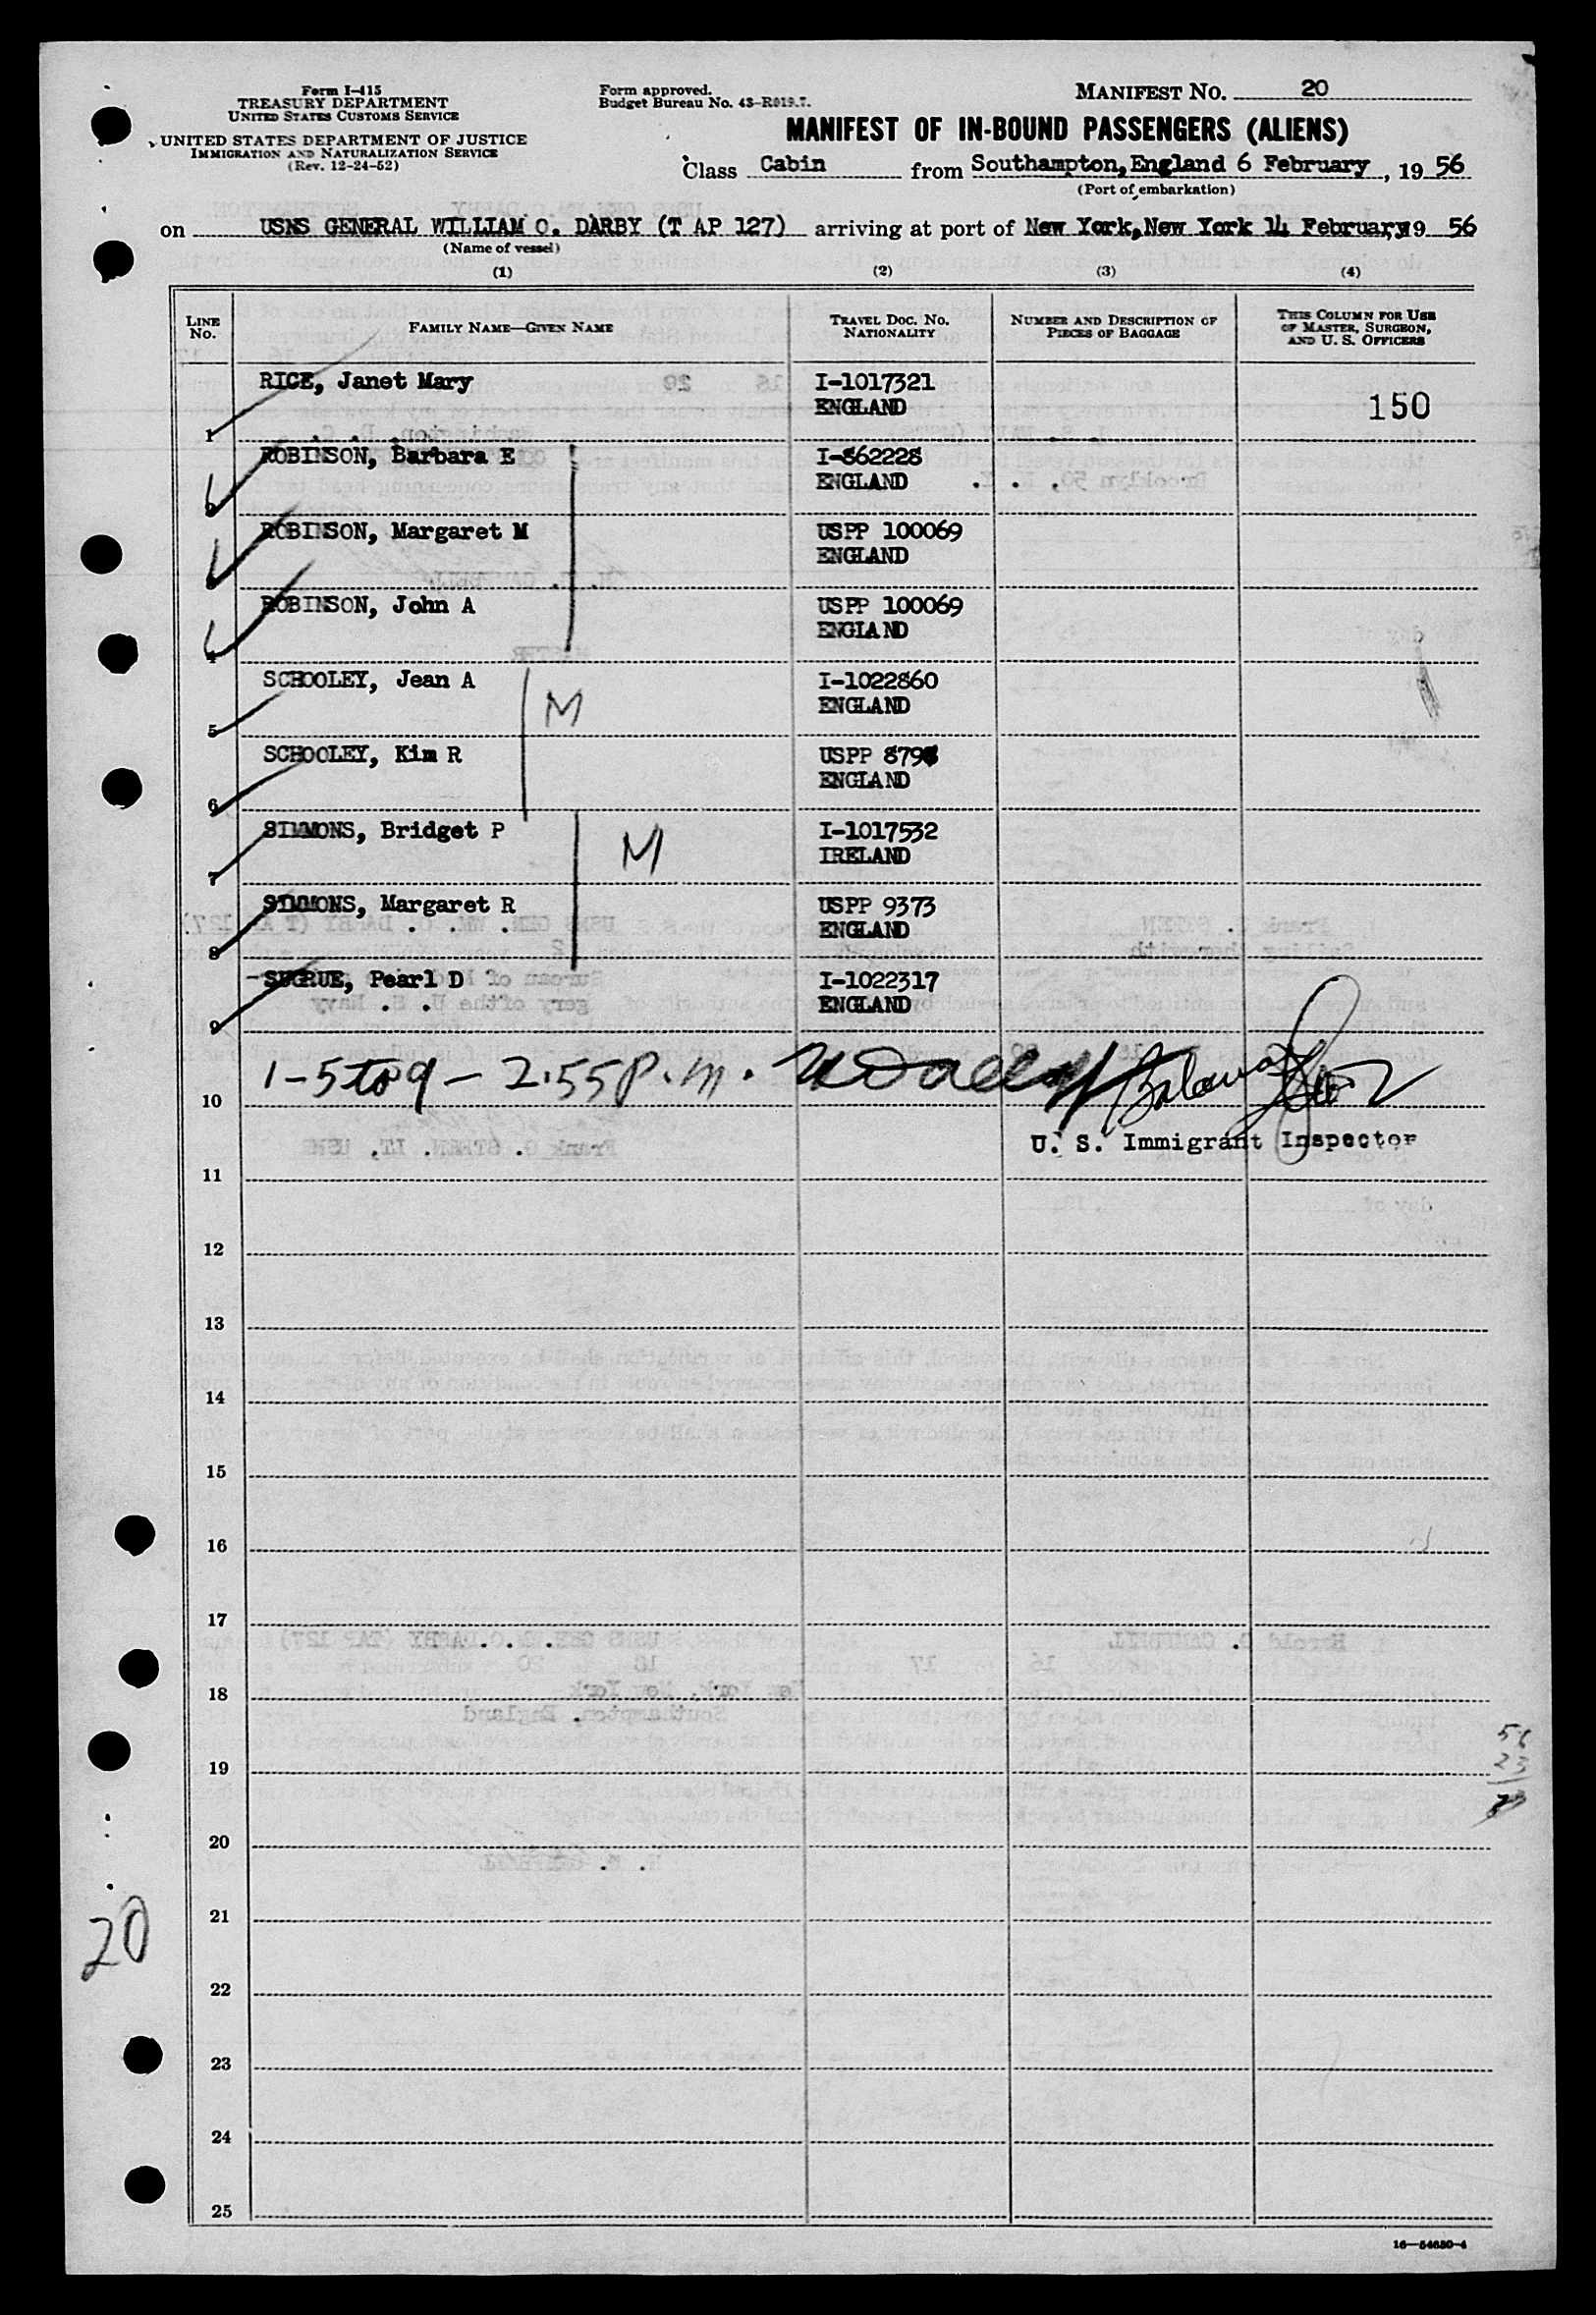 Form I-415
TREASURY DEPARTMENT
UNITED STATES CUSTOMS SERVICE
UNITED STATES DEPARTMENT OF JUSTICE
IMMIGRATION AND NATURALIZATION SERVICE
(Rev. 12-24-52)
Form approved.
Budget Bureau No. 43-R019.7.
MANIFEST NO. 20
MANIFEST OF IN-BOUND PASSENGERS (ALIENS)
Class Cabin from Southampton, England 6 February, 19 56
(Port of embarkation)
on USNS GENERAL WILLIAM O. DARBY (T AP 127) arriving at port of New York, New York 14 February, 19 56
(Name of vessel)
(1) (2) (3) (4)
LINE NO. FAMILY NAME—GIVEN NAME TRAVEL DOC. NO. NATIONALITY NUMBER AND DESCRIPTION OF PIECES OF BAGGAGE THIS COLUMN FOR USE OF MASTER, SURGEON, AND U. S. OFFICERS
1 RICE, Janet Mary I-1017321 150
ENGLAND
2 ROBINSON, Barbara E I-862228
ENGLAND
3 ROBINSON, Margaret M USPP 100069
ENGLAND
4 ROBINSON, John A USPP 100069
ENGLAND
5 SCHOOLEY, Jean A M I-1022860
ENGLAND
6 SCHOOLEY, Kim R USPP 8798
ENGLAND
7 SIMMONS, Bridget P M I-1017532
IRELAND
8 SIMMONS, Margaret R USPP 9373
ENGLAND
9 -SUGRUE, Pearl D I-1022317
ENGLAND
10 1-5 to 9 - 2.55 P.m.
U. S. Immigrant Inspector
11
12
13
14
15
16
17
18
19
20
21
22
23
24
25
56
23
20
16—54630-4